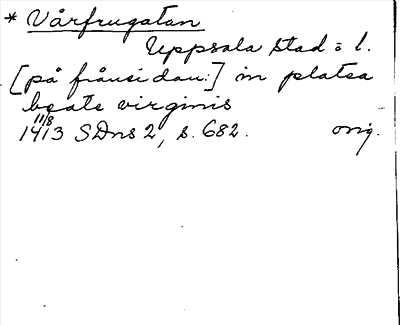 * Vårfrugatan
Uppsala stad: l.
[på frånsidan:] in platea
beate virginis
11/8
1413 SDns 2, s. 682. orig.